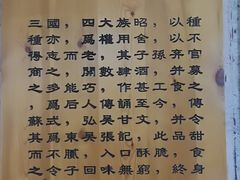 三國，四大族昭，以種
種亦，爲權用舍，以不
得志而老，其子孫弃官
商之，開數肆酒，并募
之多能巧，作甚工食
之，爲后人傳誦至今，傳
蘇式，弘吳甘文，并令
其爲東吳張記，此品甜
而不膩，入口酥脆，食
之令子回味無窮，終身